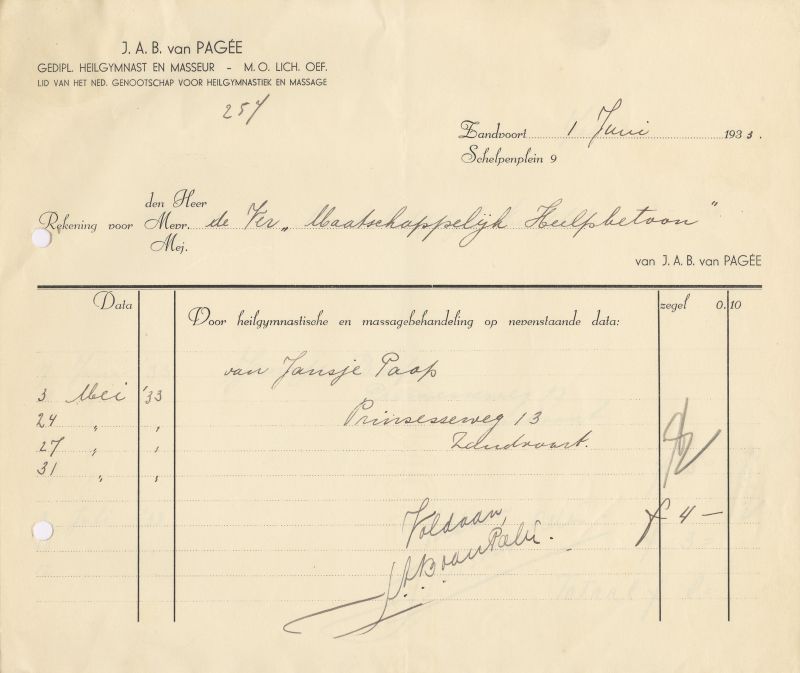 J. A. B. van PAGÉE
GEDIPL. HEILGYMNAST EN MASSEUR - M. O. LICH. OEF.
LID VAN HET NED. GENOOTSCHAP VOOR HEILGYMNASTIEK EN MASSAGE
257
Zandvoort 1 Juni 1933.
Schelpenplein 9
den Heer
Rekening voor Mevr. de Ver „Maatschappelijk Hulpbetoon"
Mej.
van J. A. B. van PAGÉE
Data zegel 0.10
Door heilgymnastische en massagebehandeling op nevenstaande data:
van Jansje Paap
3 Mei '33
24 " " Prinsesseweg 13
27 " " Zandvoort.
31 " "
Voldaan, f 4 —